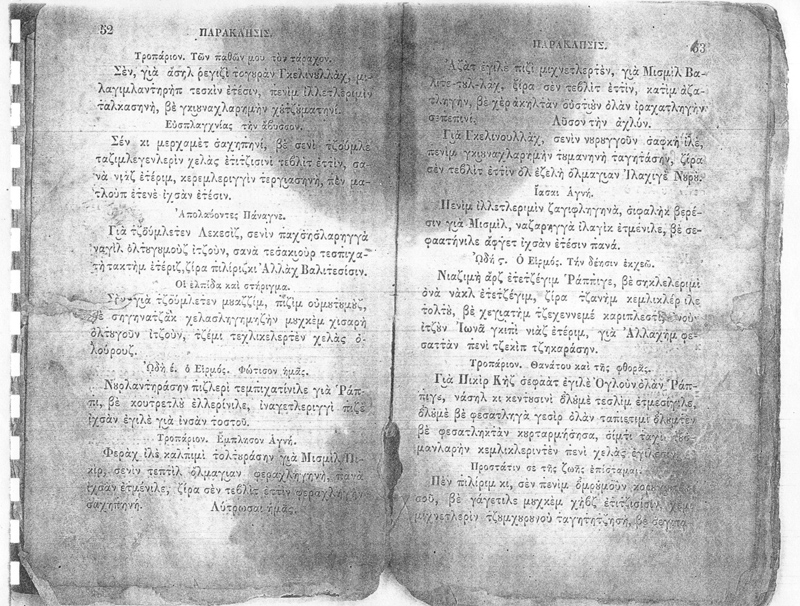 52
ΠΑΡΑΚΛΗΣΙΣ.
Τροπάριον. Τῶν παθῶν μου τὸν τάραχον.
Σὲν, γιὰ ἀσὴλ ῥεγιζὶ τογυρὰν Γκελινουλλὰχ, μι-
λαγιμλαντηρὴπ τεσκὶν ἐτέσιν, πενὶμ ἰλλετλεριμὶν
ταλκασηνὴ, βὲ γκιουναχλαρημὴν
Εὐσπλαγχνίας τὴν ἄβυσσον.
Σὲν κι μερχαμὲτ σαχηπηνὶ, βὲ σενὶ τζουμλὲ
ταζιμλεγενλερὶν χελὰς ἐτιτζισινὶ τεβλὶτ ἐττὶν, σα-
νὰ νιὰζ ἐτέριμ, κερεμλεριγγὶν τεργιασηνὴ, πὲν μα-
τλοὺπ ἐτενὲ ἰχσὰν ἐτέσιν.
Ἀπολαύοντες Πάναγνε.
Γιὰ τζούμλετεν Λεκεσὶζ, σενὶν παχσησλαρηγγὰ
ναγὶλ ὀλτουγουμοὺζ ἰτζοὺν, σανὰ τεσακιοὺρ τεσπιχα-
τὴ τακτὴμ ἐτέριζ, ζίρα πιλίριζκι Ἀλλὰχ Βαλιτεσίσιν.
Οἱ ἐλπίδα καὶ στήριγμα.
Σὲν γιὰ τζούμλετεν μουαζζὶμ, πιζὶμ οὐμουτουμοὺζ,
βὲ σηγηνατζὰκ χελασληγημηζὴν μουχκὲμ χισαρὴ
ὀλτουγοῦν ἰτζοὺν, τζέμι τεχλικελερτὲν χελὰς ὀ-
λούρουζ.
ᾨδὴ έ. ὁ Εἱρμός. Φώτισον ἡμᾶς.
Νουρλαντηράσην πιζλερὶ τεμπιχατίνιλε γιὰ Ῥάπ-
πι, βὲ κουτρετλοὺ ἐλλερίνιλε, ἰναγετλεριγγὶ πιζὲ
ἰχσὰν ἐγιλὲ γιὰ ἰνσὰν τοστοῦ.
Τροπάριον. Ἔμπλησον Ἁγνή.
Φερὰχ ἰλὲ καλπιμὶ τολτουράσην γιὰ Μισμὶλ Πι-
κὶρ, σενὶν τεπτὶλ ὀλμαγιὰν φεραχληγηνὴ, πανὰ
ἰχσὰν ἐτμένιλε, ζίρα σὲν τεβλὶτ ἐττὶν φεραχληγὴν
σαχηπηνή. Λύτρωσαι ἡμᾶς.
ΠΑΡΑΚΛΗΣΙΣ.
53
Ἀζὰτ ἐγιλὲ πιζὶ μιχνετλερτὲν, γιὰ Μισμὶλ Βα-
λιτὲ τουλ-λὰχ, ζίρα σὲν τεβλὶτ ἐττὶν, κατὶμ ἀζα-
τληγὴν, βὲ χὲρ ἀκηλτὰν οὐστιοὺν ὀλὰν ἰραχατληγὴν
σεπεπινί. Λῦσον τὴν ἀχλύν.
Γιὰ Γκελινουλλὰχ, σενὶν νουρουγγοῦν σαφκὴ ἰλὲ,
πενὶμ γκιουναχλαρημὴν τουμανηνὴ ταγητάσην, ζίρα
σὲν τεβλὶτ ἐττὶν ὀλ ἐζελὴ ὀλμαγιὰν Ἰλαχιγὲ Νουρου.
Ἴασαι Ἁγνή.
Πενὶμ ἰλλετλεριμὶν ζαγιφληγηνὰ, σιφαλὴκ βερέ-
σιν γιὰ Μισμὶλ, ναζαρηγγὰ ἰλαγὶκ ἐτμένιλε, βὲ σε-
φαατήνιλε ἀφγὲτ ἰχσὰν ἐτέσιν πανά.
ᾨδὴ ς. Ὁ Εἱρμός. Τὴν δέησιν ἐκχεῶ.
Νιαζιμὴ ἀρζ ἐτετζέγιμ Ῥάππιγε, βὲ σηκλελεριμὶ
ὀνὰ νὰκλ ἐτετζέγιμ, ζίρα τζανὴμ κεμλικλὲρ ἰλε
τολτὸ, βὲ χεγιατὴμ τζεχεννεμὲ
ἰτζοὺν Ἰωνᾶ γκιπὶ νιὰζ ἐτέριμ, γιὰ Ἀλλαχὴμ φε-
σαττὰν πενὶ τζεκὶπ τζηκαράσην.
Τροπάριον. Θανάτου καὶ τῆς φθορᾶς.
Γιὰ Πικὶρ Κὴζ σεφαὰτ ἐγιλὲ Ὀγλοῦν ὀλὰν Ῥάπ-
πιγε, νάσηλ κι κεντυσινὶ ὀλουμὲ τεσλὶμ ἐτμεσίγιλε,
ὀλουμὲ βὲ φεσατληγὰ γεσὶρ ὀλὰν ταπιετιμὶ ὀλουμτὲν
βὲ φεσατληκτὰν κουρταρμήσησα, σίμτι
μανλαρὴν κεμλικλεριντὲν πενὶ χελὰς ἐγιλέσιν.
Προστάτιν σε τῆς ζωῆς ἐπίσταμαι.
Πὲν πιλίριμ κι, σὲν πενὶμ ὀμρουμοὺν
σοῦ, βὲ γάγετιλε μουχκὲμ χὴβζ ἐτιτζισισὶν, κὲμ
μιχνετλερὶν τζουμχουρουνοὺ ταγητητζησὴ, βὲ